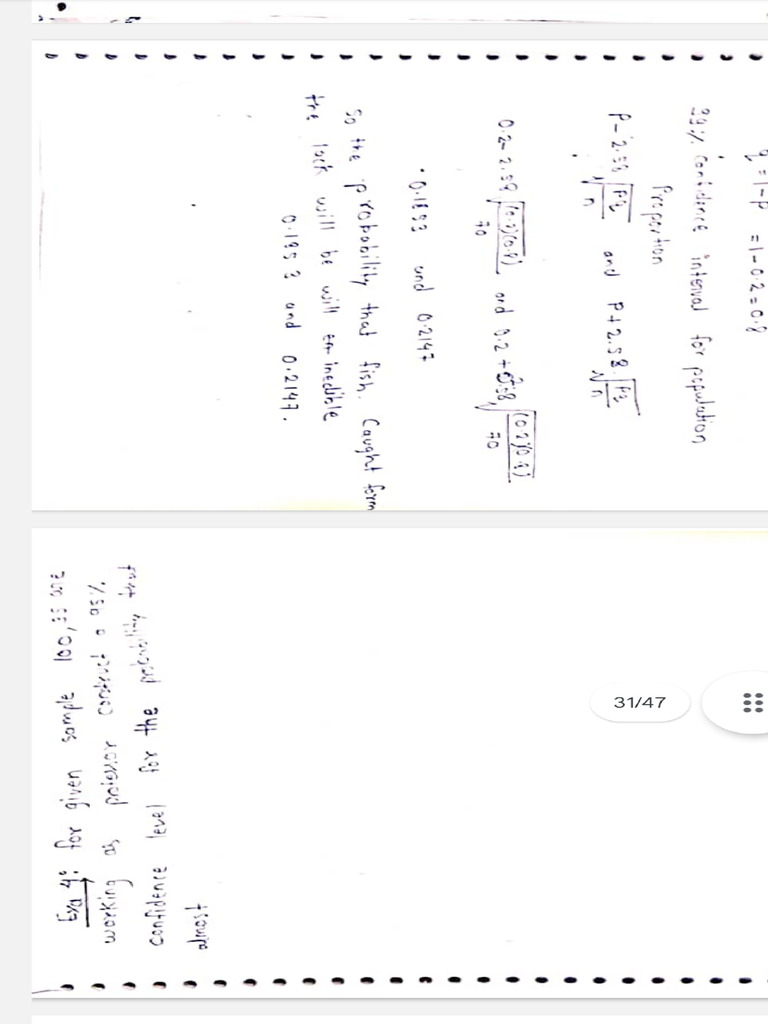 q = 1-P = 1-0.2 = 0.8
99% Confidence interval for population
Proportion
P - 2.58 √Pq/n and P + 2.58 √Pq/n
0.2 - 2.58 √(0.2)(0.8)/70 and 0.2 + 2.58 √(0.2)(0.8)/70
0.1853 and 0.2147
So the probability that fish. Caught form
the lack will be will inedible
0.1853 and 0.2147.
Exa 4: for given sample 100, 35 are
working as professor construct a 95%
confidence level for the probability that
almost
31/47